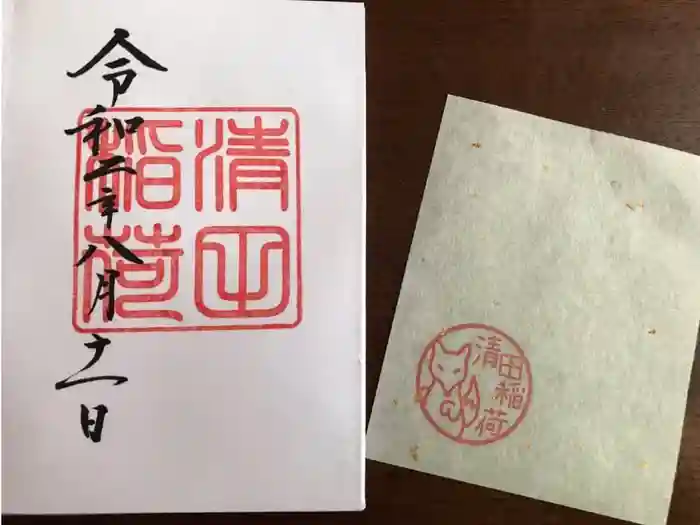 清田
稲荷
令和二年八月十一日
清田
稲荷